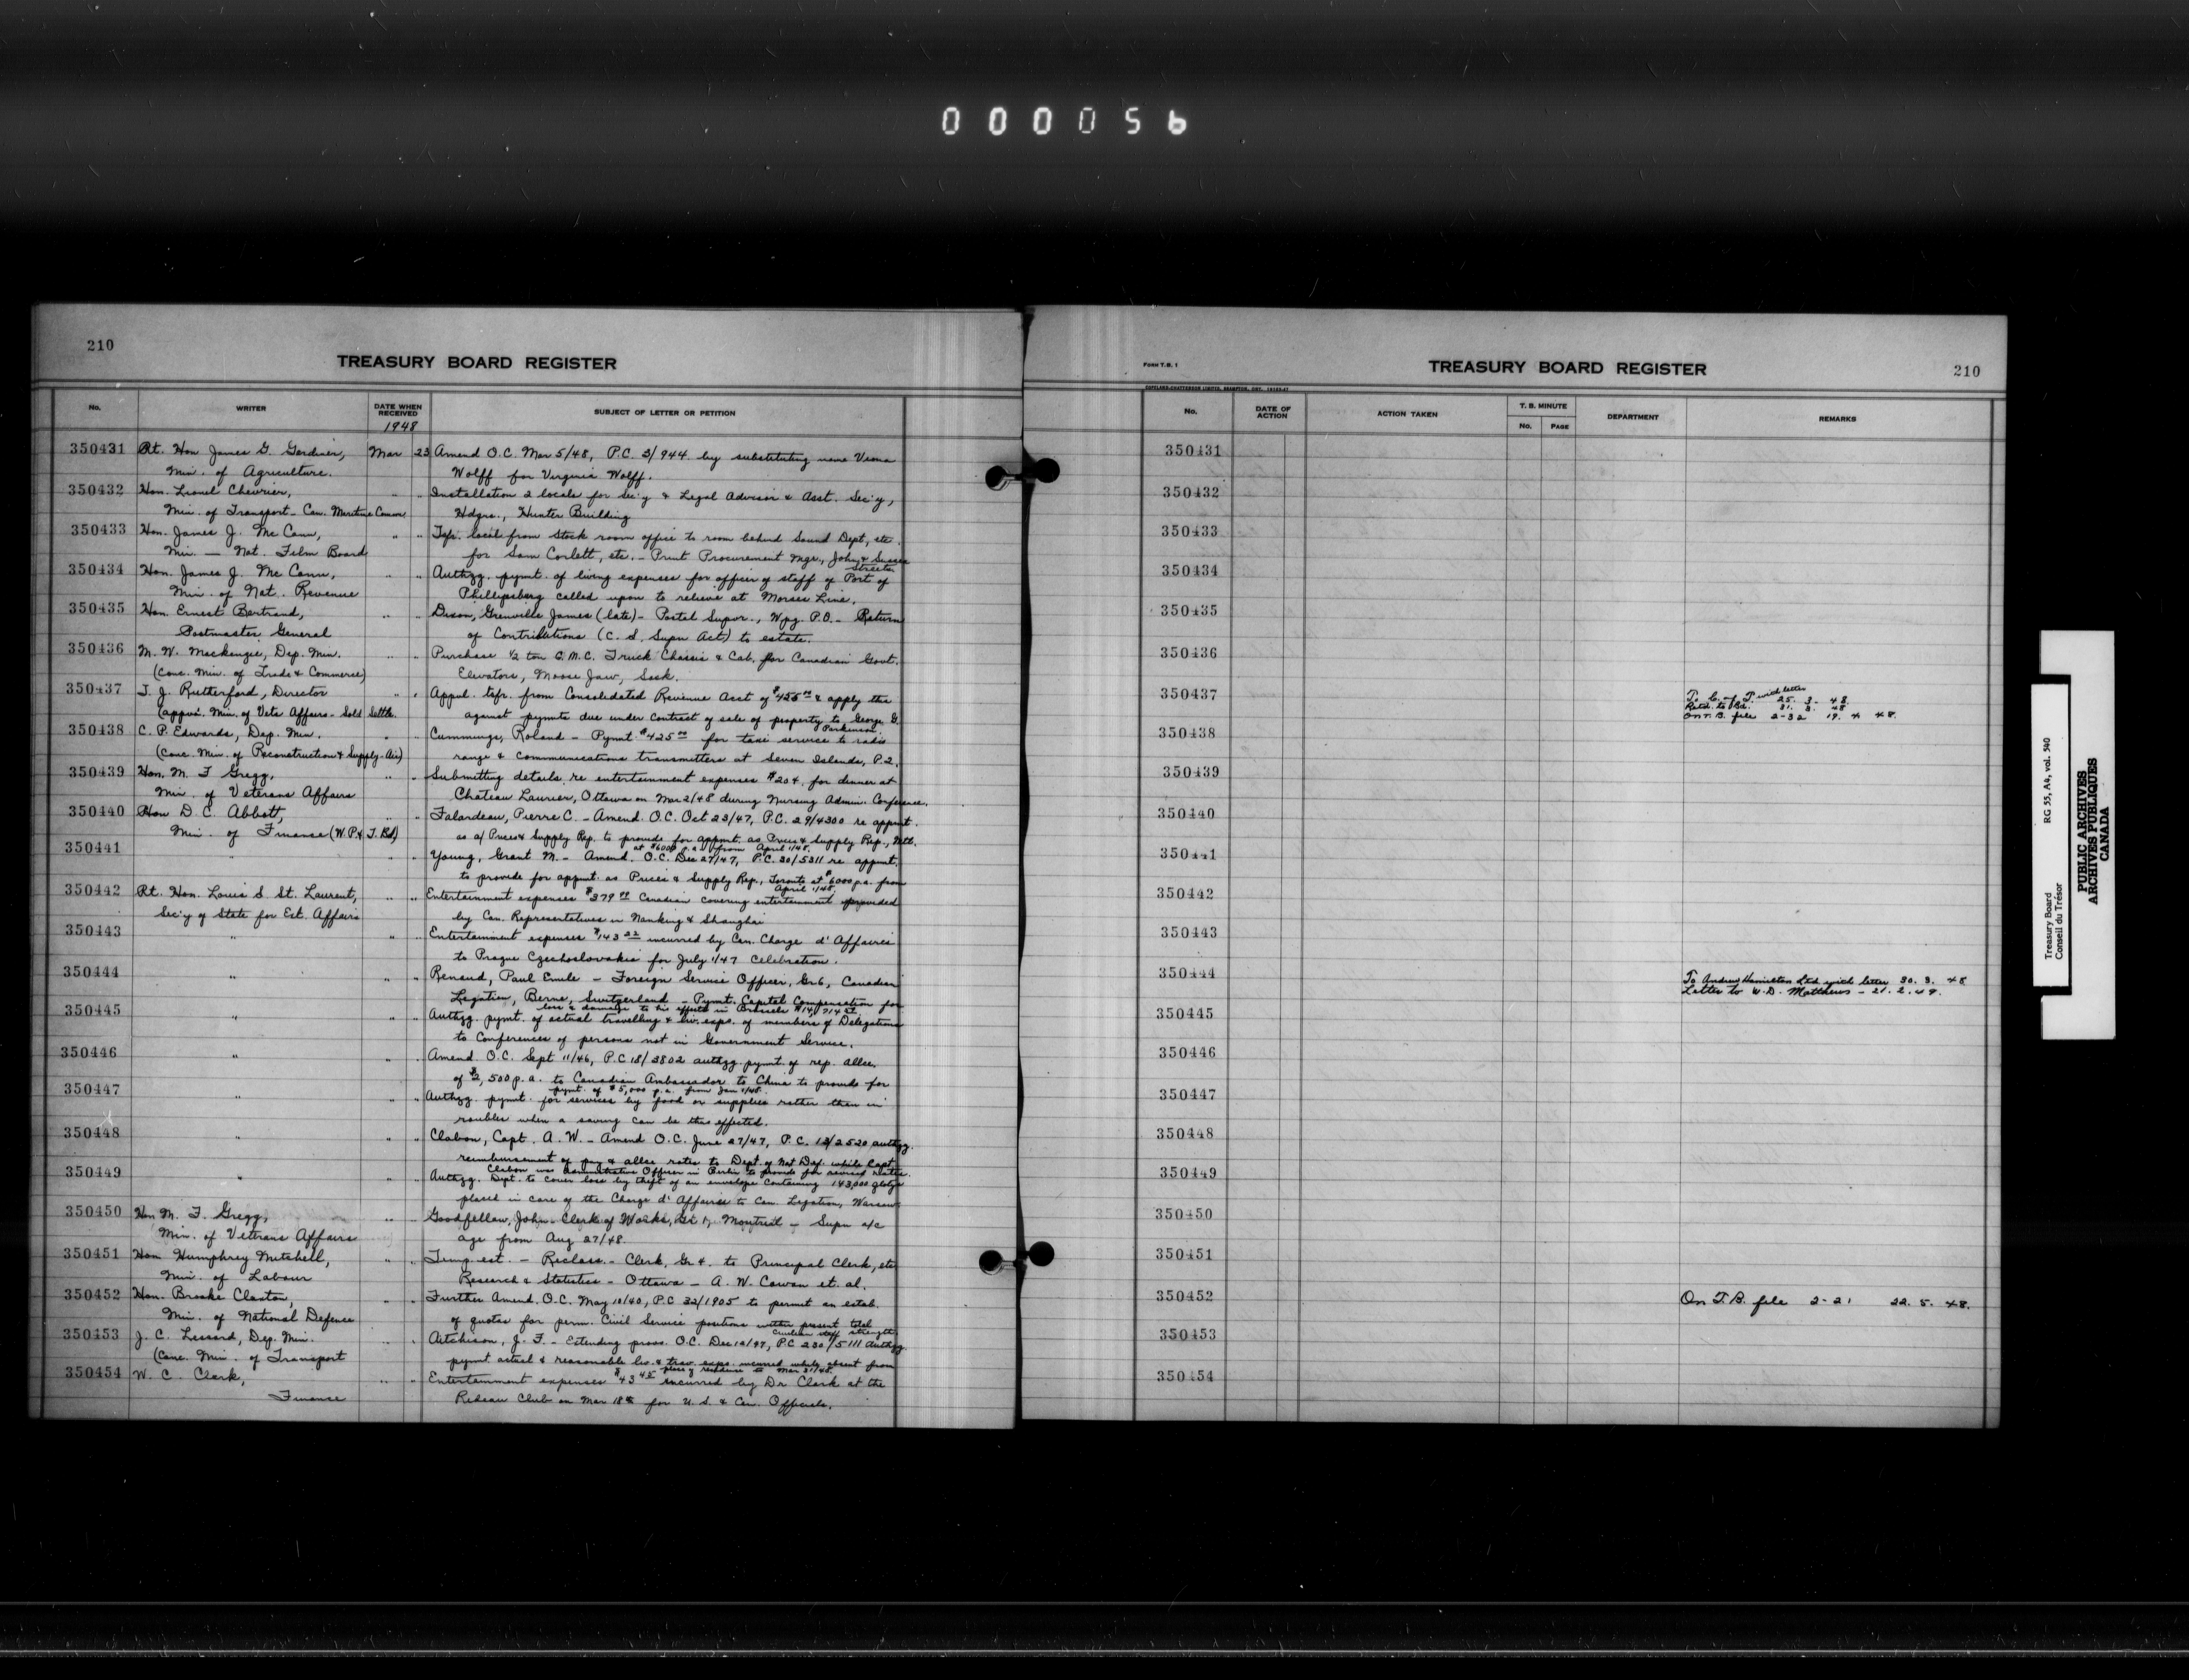 000056
210
TREASURY BOARD REGISTER
No.
WRITER
DATE WHEN RECEIVED
SUBJECT OF LETTER OR PETITION
1948
350431 Rt. Hon James G. Gardiner, Mar 23 Amend O.C. Mar 5/48, P.C. 3/944 by substituting name Verna
Min. of Agriculture. Wolff for Virginia Wolff.
350432 Hon. Lionel Chevrier, " " Installation 2 locals for Sec'y & Legal Advisor & Asst. Sec'y,
Min. of Transport - Can. Maritime Comm. Hdqrs., Hunter Building
350433 Hon. James J. McCann, " " Tsfr. local from Stock room office to room behind Sound Dept, etc.
Min. — Nat. Film Board for Sam Corlett, etc. - Print Procurement Mgr., John & Sussex
Streets
350434 Hon. James J. McCann, " " Authzg. pymt. of living expenses for officer of staff of Port of
Min. of Nat. Revenue Phillipsburg called upon to relieve at Morses Line.
350435 Hon. Ernest Bertrand, " " Dixon, Grenville James (late) - Postal Supvr., Wpg. P.O. - Return
Postmaster General of Contributions (C. S. Supn Act) to estate.
350436 M. W. Mackenzie, Dep. Min. " " Purchase 1/2 ton G.M.C. Truck Chassis & Cab. for Canadian Govt.
(Conc. Min. of Trade & Commerce) Elevators, Moose Jaw, Sask.
350437 T. J. Rutherford, Director " " Appvl. tsfr. from Consolidated Revenue Acct of & apply this
(appvd. Min. of Vets Affairs - Sold Settle. against pymts due under Contract of sale of property to George G.
Parkinson.
350438 C. P. Edwards, Dep. Min. " " Cummings, Roland - Pymt. $425.00 for taxi service to radio
(Conc. Min. of Reconstruction & Supply - Air) range & communications transmitters at Seven Islands, P.Q.
350439 Hon. M. F Gregg, " " Submitting details re entertainment expenses $204. for dinner at
Min. of Veterans Affairs Chateau Laurier, Ottawa on Mar 2/48 during Nursing Admin. Conference.
350440 Hon D. C. Abbott, " " Falardeau, Pierre C. - Amend. O.C. Oct 23/47, P.C. 29/4300 re appmt.
Min. of Finance (W.P.& T. Bd) as a/ Prices & Supply Rep. to provide for appmt. as Prices & Supply Rep., Mtl.
at $6000 p.a. from April 1/48.
350441 " " " Young, Grant M. - Amend. O.C. Dec 27/47, P.C. 30/5311 re appmt.
to provide for appmt. as Prices & Supply Rep., Toronto at $6000 p.a. from
April 1/48.
350442 Rt. Hon. Louis S. St. Laurent, " " Entertainment expenses $379.00 Canadian covering entertainment provided
Sec'y of State for Ext. Affairs by Can. Representatives in Nanking & Shanghai
350443 " " " Entertainment expenses $143.22 incurred by Can. Charge d'Affaires
to Prague Czechoslovakia for July 1/47 Celebration.
350444 " " " Renaud, Paul Emile - Foreign Service Officer, Gr 6, Canadian
Legation, Berne, Switzerland - Pymt. Capital Compensation for
loss & damage to his effects in Brussels
350445 " " " Authzg. pymt. of actual travelling & liv. exps. of members of Delegations
to Conferences of persons not in Government Service.
350446 " " " Amend. O.C. Sept 11/46, P.C 18/3802 authzg pymt. of rep. allce.
of $2,500 p.a. to Canadian Ambassador to China to provide for
pymt. of $5,000 p.a. from Jan 1/48.
350447 " " " Authzg. pymt. for services by food or supplies rather than in
roubles when a saving can be thus effected.
350448 " " " Clabon, Capt. A. W. - Amend O.C. June 27/47, P.C. 13/2520 authzg.
reimbursement of pay & allce rates to Dept. of Nat Def. while Capt.
Clabon was Administrative Officer in Berlin to provide for revised rates.
350449 " " " Authzg. Dept. to cover loss by theft of an envelope containing 143,000 zlotys
placed in care of the Charge d'Affaires to Can. Legation, Warsaw
350450 Hon M. F. Gregg, " " Goodfellow, John - Clerk of Works, Gr 1, Montreal - Supn a/c
Min. of Veterans Affairs age from Aug 27/48.
350451 Hon Humphrey Mitchell, " " Temp. est. - Reclass. - Clerk, Gr 4. to Principal Clerk, etc
Min. of Labour Research & Statistics - Ottawa - A. W. Cowan et. al.
350452 Hon. Brooke Claxton, " " Further Amend. O.C. May 10/40, P.C 32/1905 to permit an estab.
Min. of National Defence of quotas for perm. Civil Service positions within present total
civilian staff strength.
350453 J. C. Lessard, Dep. Min. " " Aitchison, J. F. - Extending provs. O.C. Dec 12/47, P.C 230/5111 authzg.
(Conc. Min. of Transport pymt. actual & reasonable liv. & trav. exps. incurred while absent from
place of residence to Mar 31/48.
350454 W. C. Clark, " " Entertainment expenses $43.45 incurred by Dr. Clark at the
Finance Rideau Club on Mar 18th for U. S. & Can. Officials.
FORM T.B. 1
TREASURY BOARD REGISTER
210
COPELAND-CHATTERSON LIMITED, BRAMPTON, ONT.
No.
DATE OF ACTION
ACTION TAKEN
T. B. MINUTE
No.
PAGE
DEPARTMENT
REMARKS
350431
350432
350433
350434
350435
350436
350437 To C. of T. with letter 25. 3. 48.
Retd. to Bd. 31. 3. 48
On T. B. file 2-32 19. 4 48.
350438
350439
350440
350441
350442
350443
350444 To Andrew Hamilton Ltd with letter 30. 3. 48
Letter to W. D. Matthews - 21. 2. 49.
350445
350446
350447
350448
350449
350450
350451
350452 On T.B. file 2-21 22. 5. 48.
350453
350454
Treasury Board RG 55, A4, vol. 540
Conseil du Trésor
PUBLIC ARCHIVES
ARCHIVES PUBLIQUES
CANADA